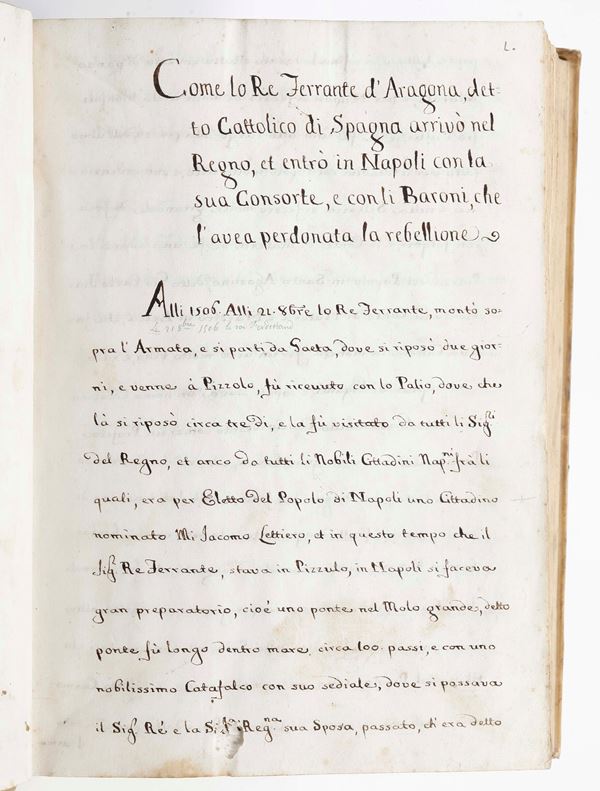 1.
Come lo Re Ferrante d'Aragona, det-
to Cattolico di Spagna arrivò nel
Regno, et entrò in Napoli con la
sua Consorte, e con li Baroni, che
l'avea perdonata la rebellione
Alli 1506. Alli 21. 8bre lo Re Ferrante, montò so-
Le 21 8bre 1506 le roi Ferdinand
pra l'Armata, e si partì da Gaeta, dove si riposò due gior-
ni, e venne à Pizzolo, fù ricevuto con lo Palio, dove che
là si riposò circa tre dì, e la fù visitato da tutti li Sig:ri
del Regno, et anco da tutti li Nobili Cittadini Nap:ni frà li
quali, era per Eletto del Popolo di Napoli uno Cittadino
nominato Mi Jacomo Lettiero, et in questo tempo che il
Sig: Re Ferrante, stava in Pizzulo, in Napoli si faceva
gran preparatorio, cioè uno ponte nel Molo grande, detto
ponte fù longo dentro mare, circa 100. passi, e con uno
nobilissimo Catafalco con suo sediale, dove si possava
il Sig: Ré e la Sig:ra Reg:na sua Sposa, passato, ch'era detto